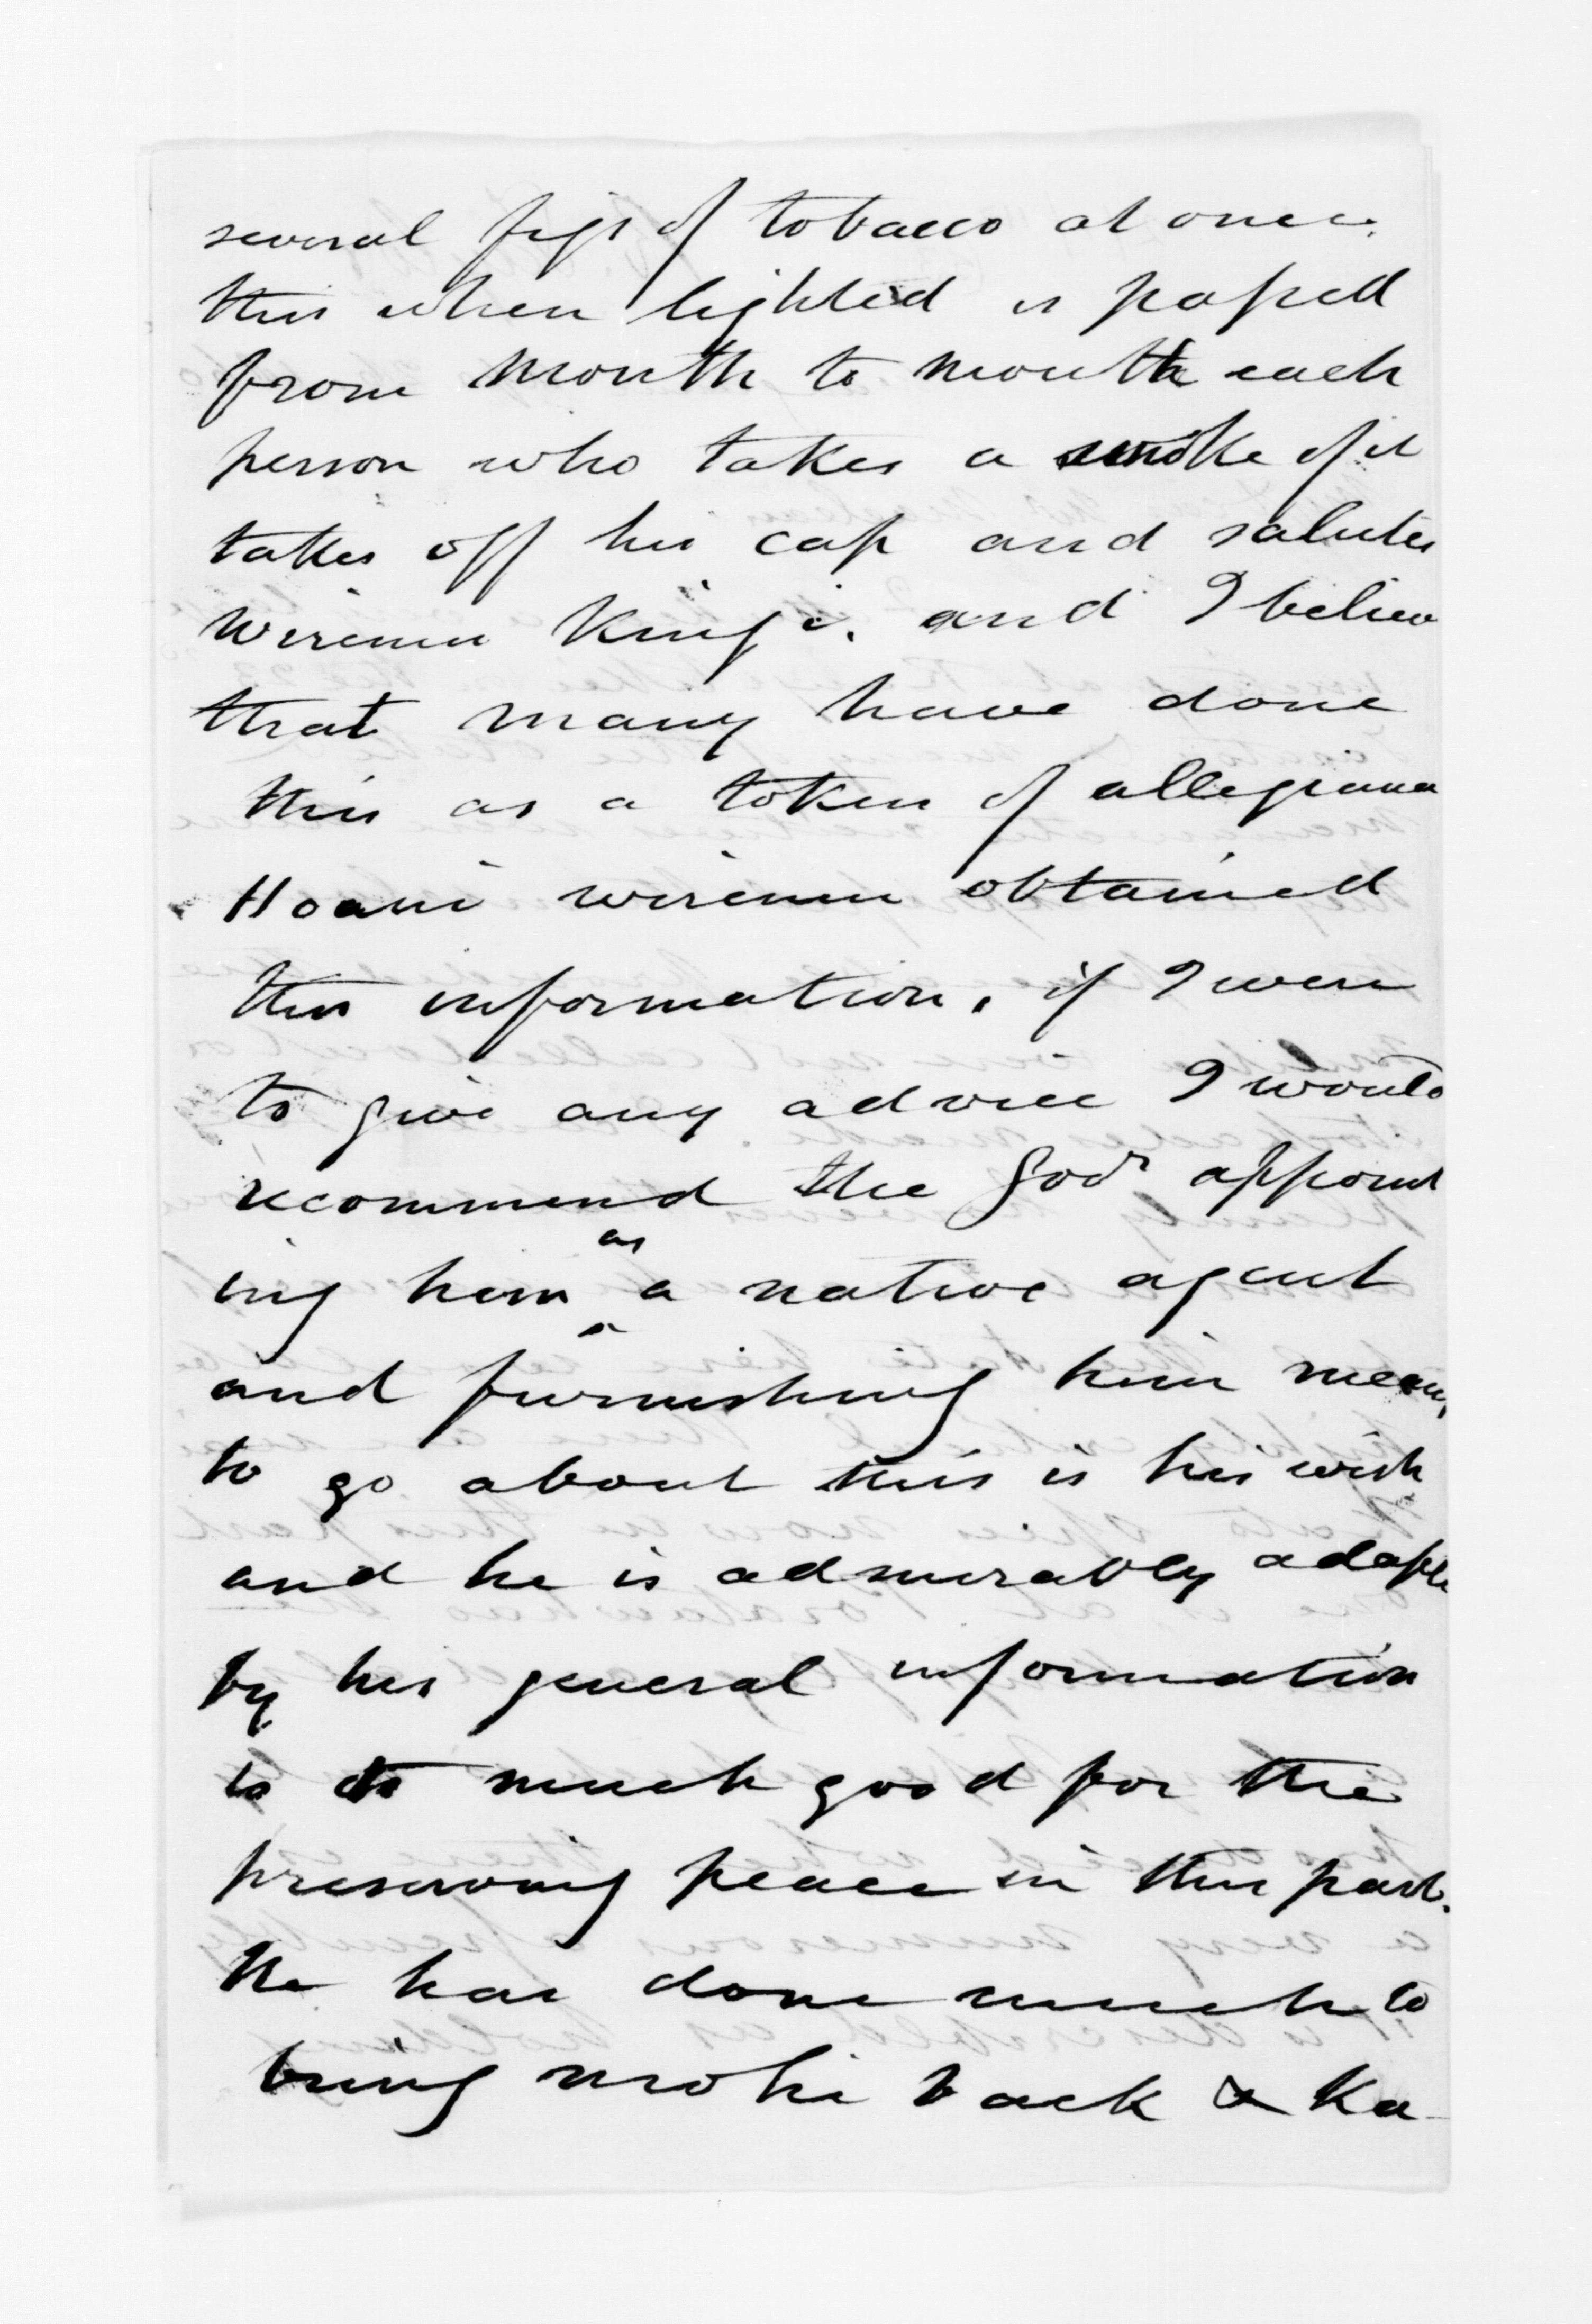 several figs of tobacco at once.
this when lighted is passed
from mouth to mouth each
person who takes a smoke of it
takes off his cap and salutes
Wiremu Kingi. and I believe
that many have done
this as a token of allegiance
Hoani wiremu obtained
this information. if I were
to give any advice I would
recommend the Govr appoint
ing him as a native agent
and furnishing him means
to go about this is his wish
and he is admirably adapted
by his general information
to do much good for the
preserving peace in this part.
He has done much to
bring mohi back & Ka-